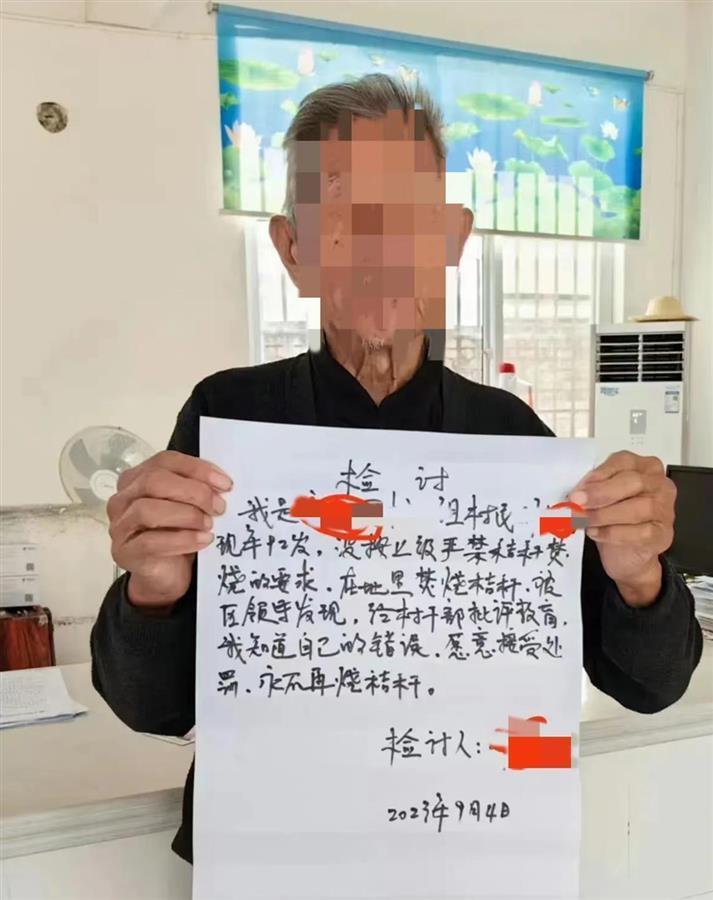 检 讨
我是 组村民
现年92岁，没按上级严禁秸秆焚
烧的要求，在地里焚烧秸秆，被
区领导发现，给村干部批评教育，
我知道自己的错误，愿意接受处
罚，永不再烧秸秆。
检讨人：
2023年9月4日